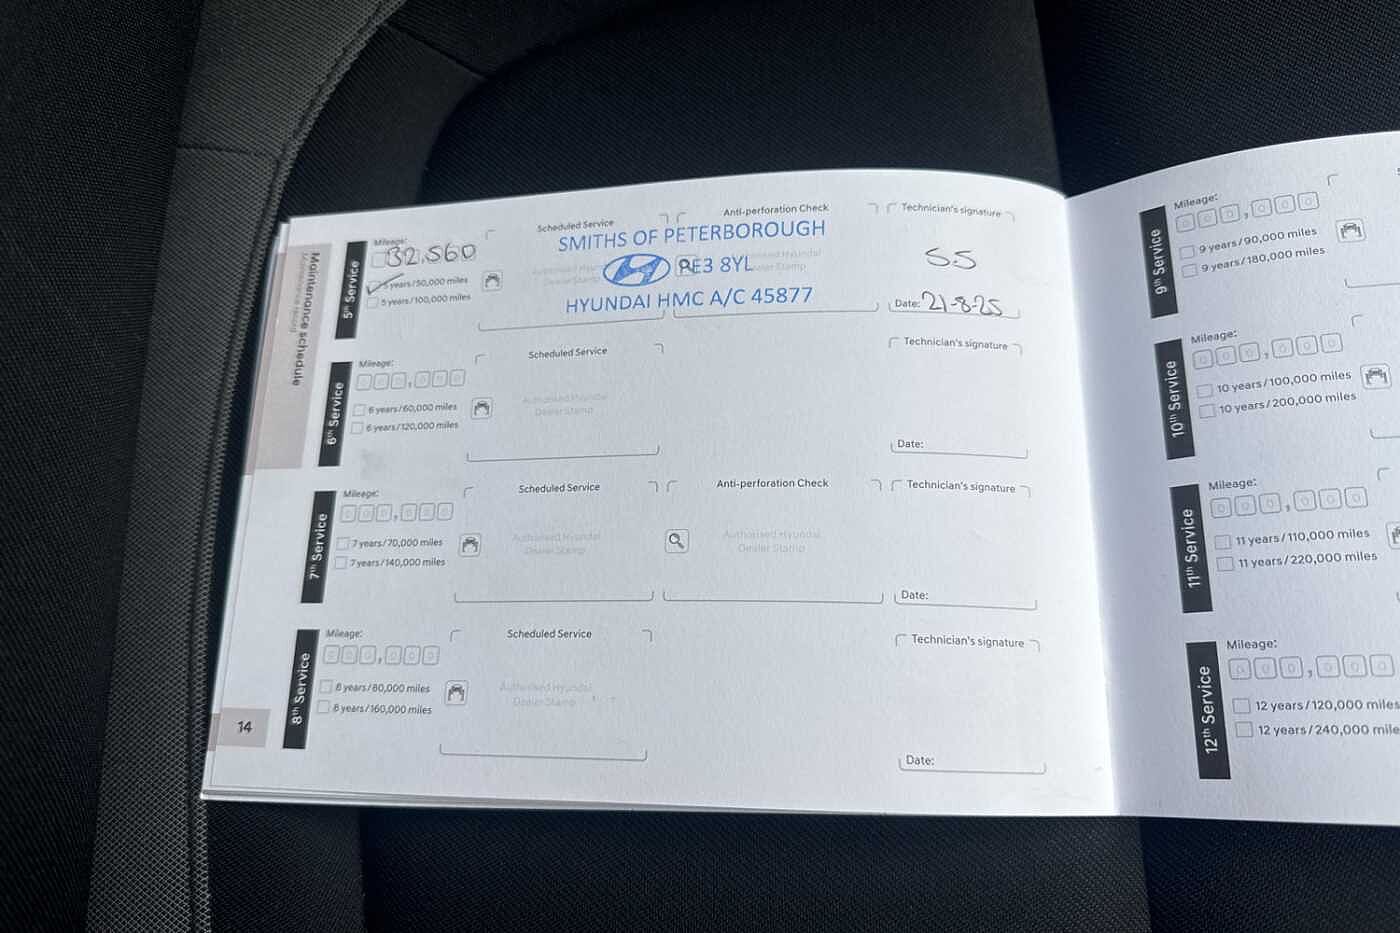 Maintenance schedule
Maintenance record
5th Service
Mileage:
32.560
5 years/50,000 miles
5 years/100,000 miles
Scheduled Service
Anti-perforation Check
SMITHS OF PETERBOROUGH
PE3 8YL
HYUNDAI HMC A/C 45877
Technician's signature
SS
Date: 21-8-25
6th Service
Mileage:
000,000
6 years/60,000 miles
6 years/120,000 miles
Scheduled Service
Authorised Hyundai
Dealer Stamp
Technician's signature
Date:
7th Service
Mileage:
000,000
7 years/70,000 miles
7 years/140,000 miles
Scheduled Service
Authorised Hyundai
Dealer Stamp
Anti-perforation Check
Authorised Hyundai
Dealer Stamp
Technician's signature
Date:
8th Service
Mileage:
000,000
8 years/80,000 miles
8 years/160,000 miles
Scheduled Service
Authorised Hyundai
Dealer Stamp
Technician's signature
Date:
14
9th Service
Mileage:
000,000
9 years/90,000 miles
9 years/180,000 miles
10th Service
Mileage:
000,000
10 years/100,000 miles
10 years/200,000 miles
11th Service
Mileage:
000,000
11 years/110,000 miles
11 years/220,000 miles
12th Service
Mileage:
000,000
12 years/120,000 miles
12 years/240,000 mile